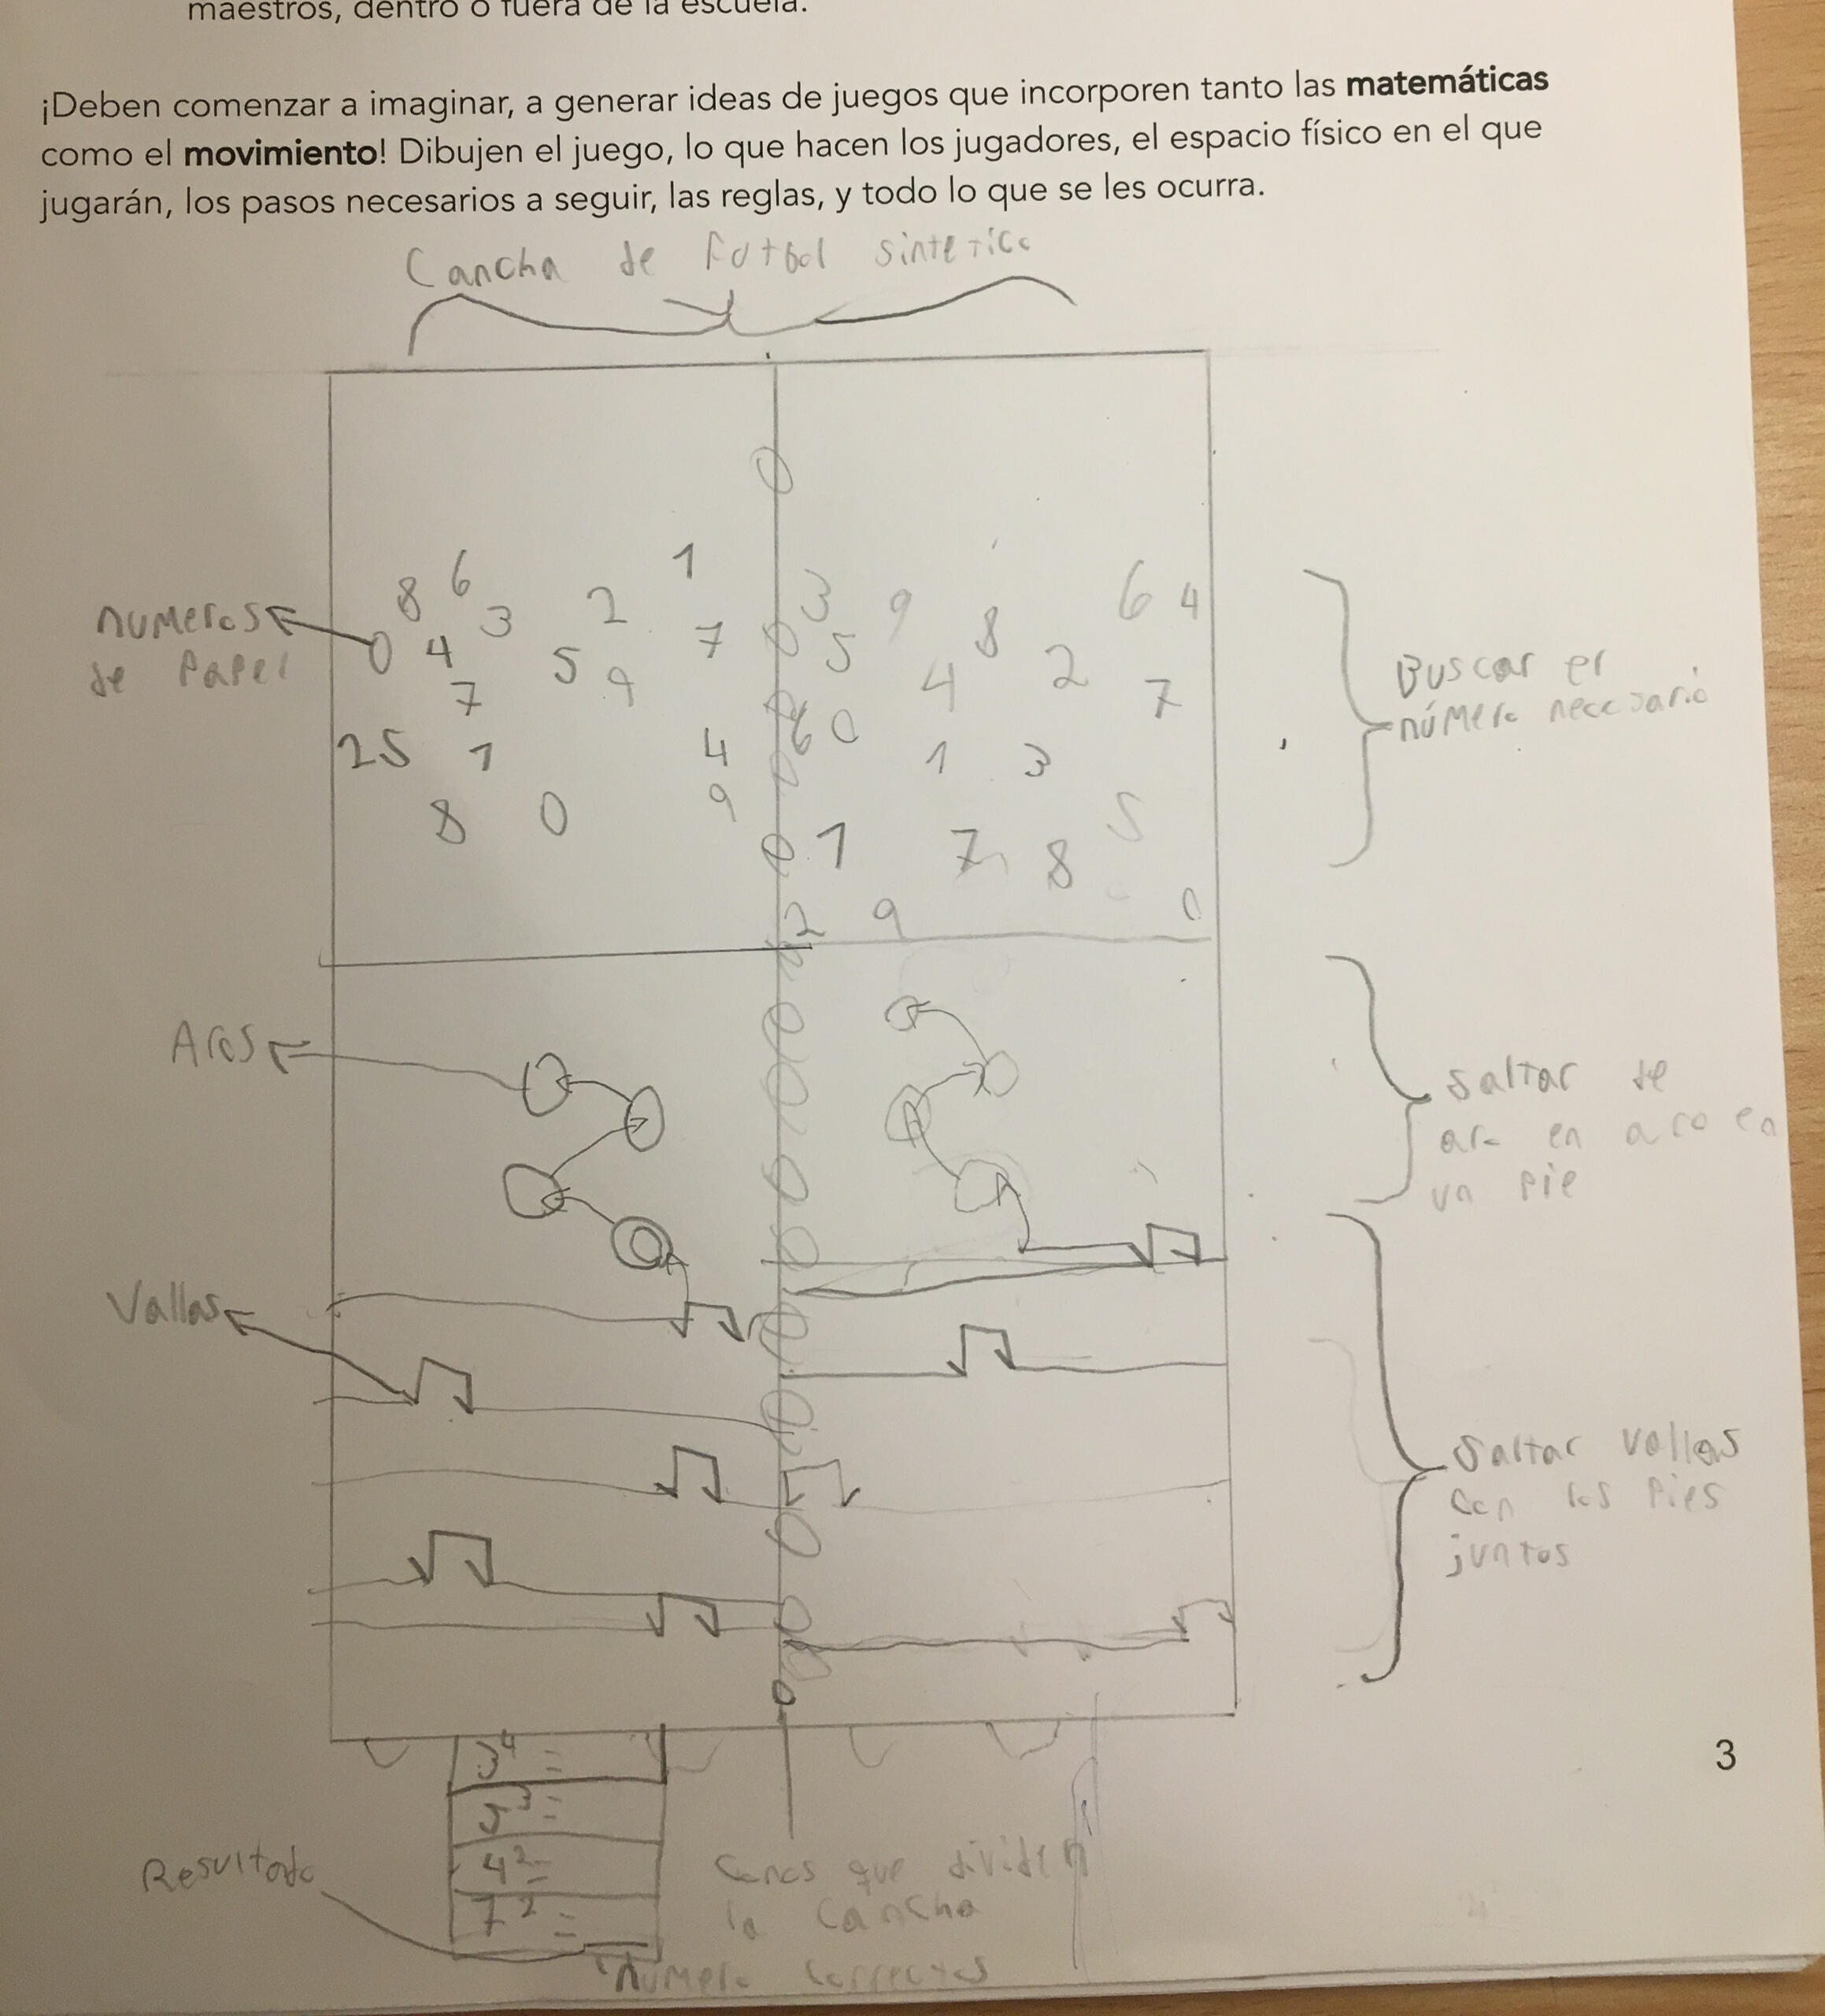 maestros, dentro o fuera de la escuela.
¡Deben comenzar a imaginar, a generar ideas de juegos que incorporen tanto las matemáticas
como el movimiento! Dibujen el juego, lo que hacen los jugadores, el espacio físico en el que
jugarán, los pasos necesarios a seguir, las reglas, y todo lo que se les ocurra.
Cancha de Futbol sintetico
1
8 6 3 2 3 9 8 6 4
numeros
de Papel
0 4 5 9 7 5 4 2 7
7
Buscar el
número necesario
25 1 4 6 0 1 3
8 0 9 1 7 8 5
2 9 0
Aros
Saltar de
aro en aro en
un pie
Vallas
Saltar vallas
con los pies
juntos
3
3⁴ =
5³ =
4² =
7² =
Resultado
Conos que dividen
la cancha
numero correctos